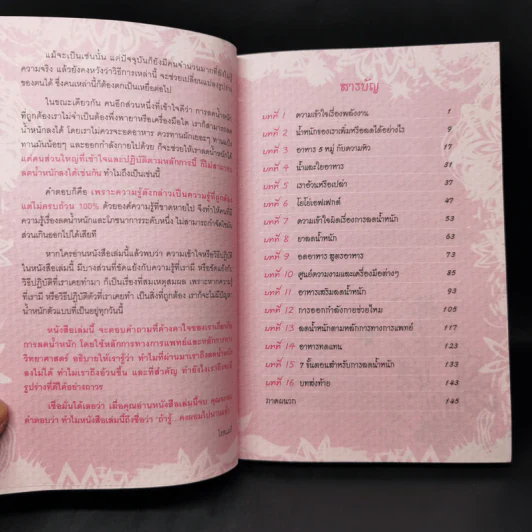 แม้จะเป็นเช่นนั้น แต่ปัจจุบันก็ยังมีคนจำนวนมากที่ยังไม่รู้
ความจริง แล้วยังคงหวังว่าวิธีการเหล่านี้ จะช่วยเปลี่ยนแปลงรูปร่าง
ของตนได้ ซึ่งคนเหล่านี้ก็ต้องตกเป็นเหยื่อต่อไป
ในขณะเดียวกัน คนอีกส่วนหนึ่งที่เข้าใจดีว่า การลดน้ำหนัก
ที่ถูกต้องเราไม่จำเป็นต้องพึ่งพายาหรือเครื่องมือใด เราก็สามารถลด
น้ำหนักลงได้ โดยเราไม่ควรจะอดอาหาร ควรทานผักเยอะๆ ทานแป้ง
ทานมันน้อยๆ และออกกำลังกายไปด้วย ก็จะช่วยให้เราลดน้ำหนักได้
แต่คนส่วนใหญ่ที่เข้าใจและปฏิบัติตามหลักการนี้ ก็ไม่สามารถ
ลดน้ำหนักลงได้เช่นกัน ทำไมถึงเป็นเช่นนี้
คำตอบก็คือ เพราะความรู้ดังกล่าวเป็นความรู้ที่ถูกต้อง
แต่ไม่ครบถ้วน 100% ด้วยองค์ความรู้ที่ขาดหายไป จึงทำให้คนที่มี
ความรู้เรื่องลดน้ำหนักและโภชนาการระดับหนึ่ง ไม่สามารถกำจัดไขมัน
ส่วนเกินออกไปได้เสียที
หากใครอ่านหนังสือเล่มนี้แล้วพบว่า ความเข้าใจหรือวิธีปฏิบัติ
ในหนังสือเล่มนี้ มีบางส่วนที่ขัดแย้งกับความรู้ที่เรามี หรือขัดแย้งกับ
วิธีปฏิบัติที่เราเคยทำมา ก็เป็นเรื่องที่สมเหตุสมผล เพราะหากความรู้
ที่เรามี หรือวิธีปฏิบัติตัวที่เราเคยทำ เป็นสิ่งที่ถูกต้อง เราก็จะไม่มีปัญหา
น้ำหนักตัวแบบที่เป็นอยู่ทุกวันนี้
หนังสือเล่มนี้ จะตอบคำถามที่ค้างคาใจของเราเกี่ยวกับ
การลดน้ำหนัก โดยใช้หลักการทางการแพทย์และหลักการทาง
วิทยาศาสตร์ อธิบายให้เรารู้ว่า ทำไมที่ผ่านมาเราถึงลดน้ำหนัก
ลงไม่ได้ ทำไมเราถึงอ้วนขึ้น และที่สำคัญ ทำยังไงเราถึงจะมี
รูปร่างที่ดีได้อย่างถาวร
เชื่อมั่นได้เลยว่า เมื่อคุณอ่านหนังสือเล่มนี้จบ คุณจะ
คำตอบว่า ทำไมหนังสือเล่มนี้ถึงชื่อว่า "ถ้ารู้...คงผอมไปนานแล้ว"
สารบัญ
บทที่ 1 ความเข้าใจเรื่องพลังงาน 1
บทที่ 2 น้ำหนักของเราเพิ่มหรือลดได้อย่างไร 9
บทที่ 3 อาหาร 5 หมู่ กับความหิว 17
บทที่ 4 น้ำและใยอาหาร 31
บทที่ 5 เราอ้วนหรือเปล่า 37
บทที่ 6 โยโย่เอฟเฟกต์ 47
บทที่ 7 ความเข้าใจผิดเรื่องการลดน้ำหนัก 53
บทที่ 8 ยาลดน้ำหนัก 63
บทที่ 9 อดอาหาร สูตรอาหาร 73
บทที่ 10 ศูนย์ความงามและเครื่องมือต่างๆ 85
บทที่ 11 อาหารเสริมลดน้ำหนัก 93
บทที่ 12 การออกกำลังกายช่วยไหม 105
บทที่ 13 ลดน้ำหนักตามหลักการทางการแพทย์ 117
บทที่ 14 อาหารทดแทน 123
บทที่ 15 7 ขั้นตอนสำหรับการลดน้ำหนัก 133
บทที่ 16 บทส่งท้าย 143
ภาคผนวก 145